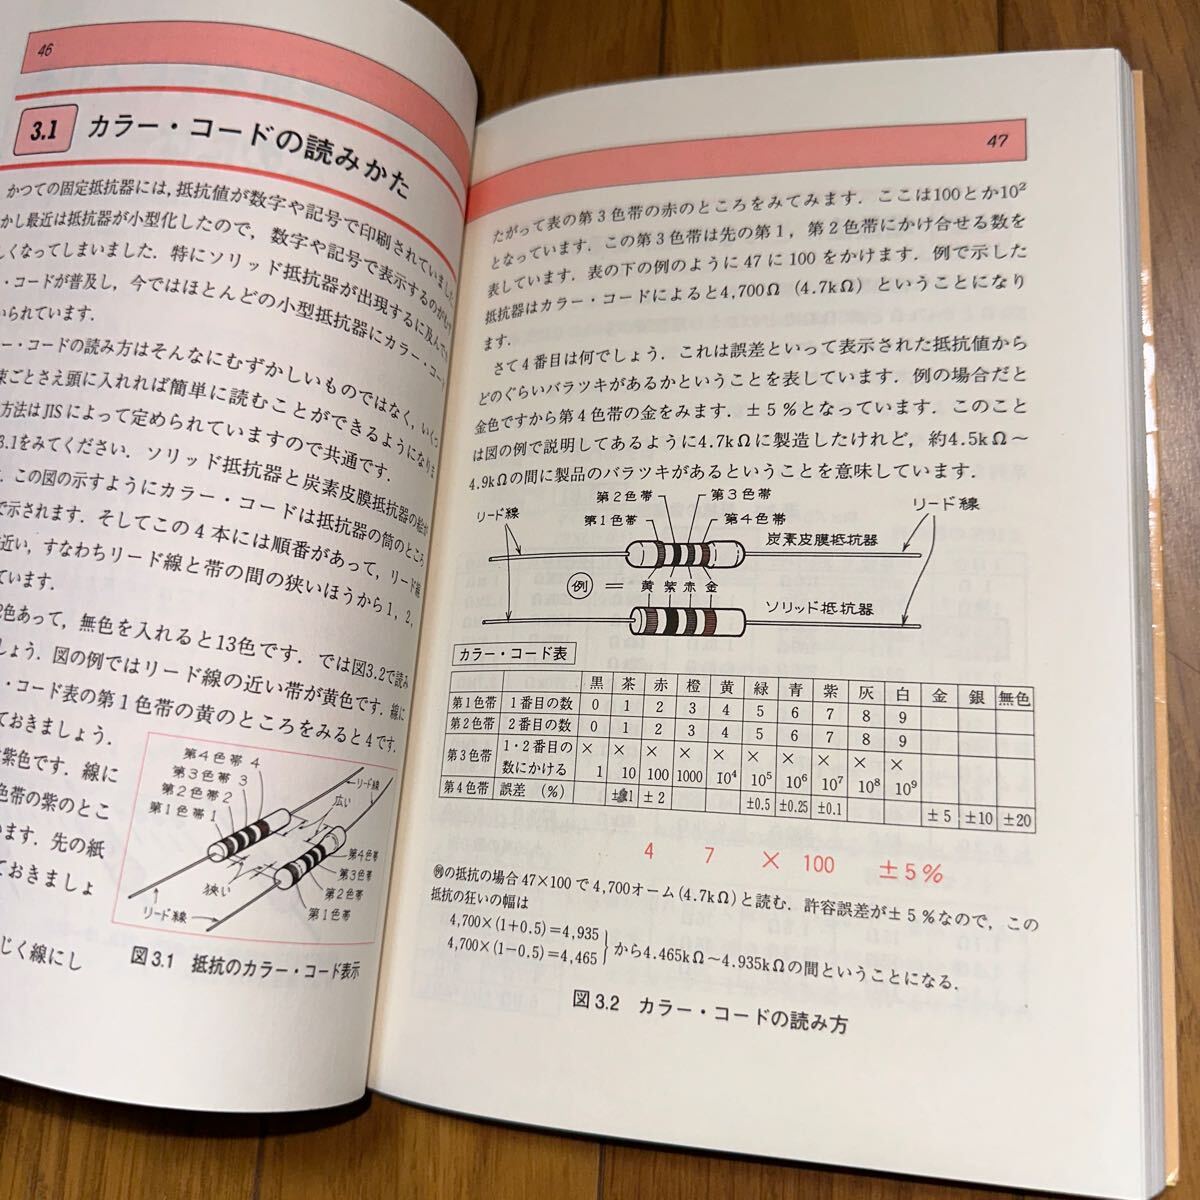 46
3.1 カラー・コードの読みかた
かつての固定抵抗器には,抵抗値が数字や記号で印刷されていました
かし最近は抵抗器が小型化したので,数字や記号で表示するのがむず
しくなってしまいました.特にソリッド抵抗器が出現するに及んで
・コードが普及し,今ではほとんどの小型抵抗器にカラー・コー
いられています.
ー・コードの読み方はそんなにむずかしいものではなく,いくつ
束ごとさえ頭に入れれば簡単に読むことができるようになりま
方法はJISによって定められていますので共通です.
3.1をみてください.ソリッド抵抗器と炭素皮膜抵抗器の絵が
.この図の示すようにカラー・コードは抵抗器の筒のところ
で示されます.そしてこの4本には順番があって,リード線
近い,すなわちリード線と帯の間の狭いほうから1,2,
ています.
2色あって,無色を入れると13色です.では図3.2で読み
しょう.図の例ではリード線の近い帯が黄色です.線に
・コード表の第1色帯の黄のところをみると4です.
ておきましょう.
紫色です.線に
色帯の紫のとこ
います.先の紙
ておきましょ
じく線にし
第4色帯 4
第3色帯 3
第2色帯 2
第1色帯 1
リード線
広い
狭い
第4色帯
第3色帯
第2色帯
第1色帯
リード線
図3.1 抵抗のカラー・コード表示
47
たがって表の第3色帯の赤のところをみてみます.ここは100とか10²
となっています.この第3色帯は先の第1,第2色帯にかけ合せる数を
表しています.表の下の例のように47に100をかけます.例で示した
抵抗器はカラー・コードによると4,700Ω(4.7kΩ)ということになり
ます.
さて4番目は何でしょう.これは誤差といって表示された抵抗値から
どのぐらいバラツキがあるかということを表しています.例の場合だと
金色ですから第4色帯の金をみます.±5%となっています.このこと
は図の例で説明してあるように4.7kΩに製造したけれど,約4.5kΩ〜
4.9kΩの間に製品のバラツキがあるということを意味しています.
第2色帯 第3色帯
リード線 第1色帯 第4色帯 リード線
炭素皮膜抵抗器
例 = 黄 紫 赤 金
ソリッド抵抗器
カラー・コード表
黒 茶 赤 橙 黄 緑 青 紫 灰 白 金 銀 無色
第1色帯 1番目の数 0 1 2 3 4 5 6 7 8 9
第2色帯 2番目の数 0 1 2 3 4 5 6 7 8 9
第3色帯 1・2番目の数にかける ×1 ×10 ×100 ×1000 ×10⁴ ×10⁵ ×10⁶ ×10⁷ ×10⁸ ×10⁹
第4色帯 誤差 (%) ±1 ±2 ±0.5 ±0.25 ±0.1 ±5 ±10 ±20
4 7 × 100 ±5%
例の抵抗の場合47×100で4,700オーム(4.7kΩ)と読む.許容誤差が±5%なので,この
抵抗の狂いの幅は
4,700×(1+0.5)=4,935
4,700×(1−0.5)=4,465
から4.465kΩ〜4.935kΩの間ということになる.
図3.2 カラー・コードの読み方